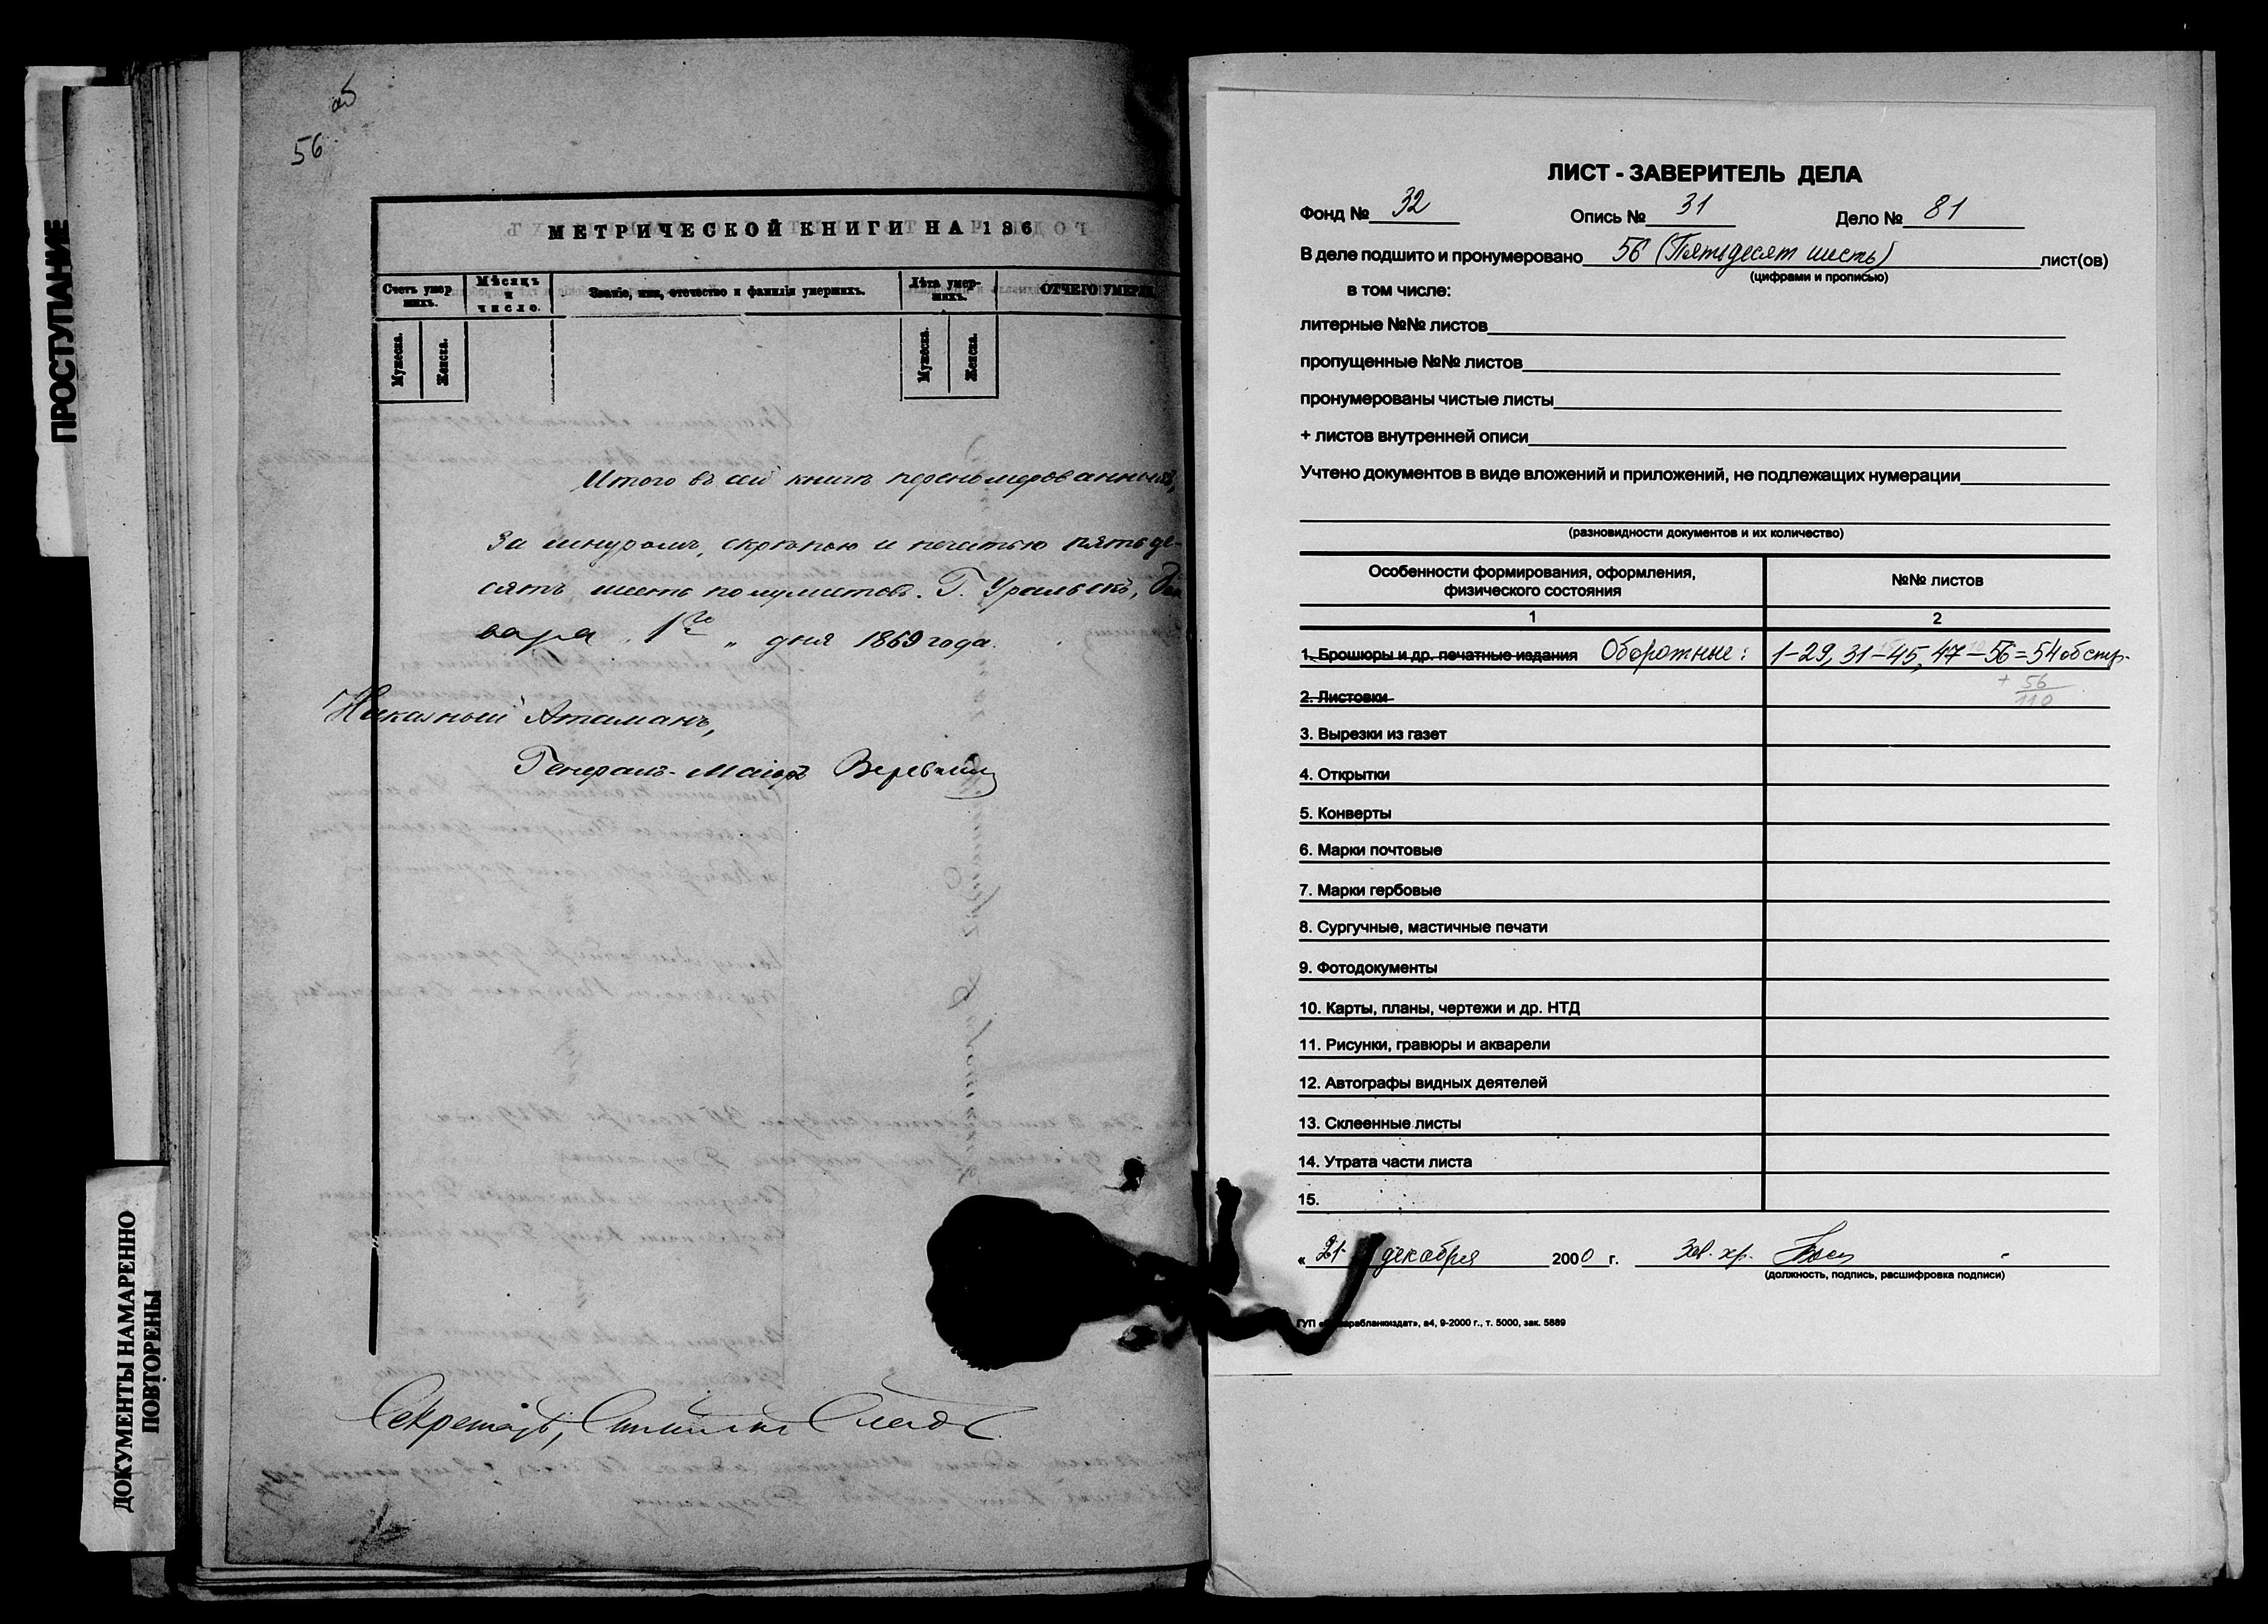 ПРОСТУПАНИЕ
ДОКУМЕНТЫ НАМАРЕННО
ПОВТОРЕНЫ
об
56
МЕТРИЧЕСКОЙ КНИГИ НА 186
Счетъ умер
шихъ.
Мѣсяцъ
и
число.
Званіе, имя, отечество и фамилія умершихъ.
Лѣта умер-
шихъ.
ОТЧЕГО УМЕРЛИ
Мужеска.
Женска.
Мужеска.
Женска.
Итого въ сей книгѣ перенумерованныхъ,
за шнуромъ, скрѣпою и печатью пятьде-
сятъ шесть полулистовъ. Г. Уральскъ, Ян
варя 1го дня 1869 года.
Наказный Атаманъ,
Генералъ-Маіоръ Веревкинъ
Секретарь,
ЛИСТ - ЗАВЕРИТЕЛЬ ДЕЛА
Фонд № 32 Опись № 31 Дело № 81
В деле подшито и пронумеровано 56 (Пятьдесят шесть) лист(ов)
(цифрами и прописью)
в том числе:
литерные №№ листов
пропущенные №№ листов
пронумерованы чистые листы
+ листов внутренней описи
Учтено документов в виде вложений и приложений, не подлежащих нумерации
(разновидности документов и их количество)
Особенности формирования, оформления,
физического состояния
№№ листов
1 2
1. Брошюры и др. печатные издания Оборотные: 1-29, 31-45, 47-56=54 об стр.
+ 56
110
2. Листовки
3. Вырезки из газет
4. Открытки
5. Конверты
6. Марки почтовые
7. Марки гербовые
8. Сургучные, мастичные печати
9. Фотодокументы
10. Карты, планы, чертежи и др. НТД
11. Рисунки, гравюры и акварели
12. Автографы видных деятелей
13. Склеенные листы
14. Утрата части листа
15.
« 21 декабря 2000 г. Зав. хр.
(должность, подпись, расшифровка подписи)
ГУП « арабланкиздат», а4, 9-2000 г., т. 5000, зак. 5889